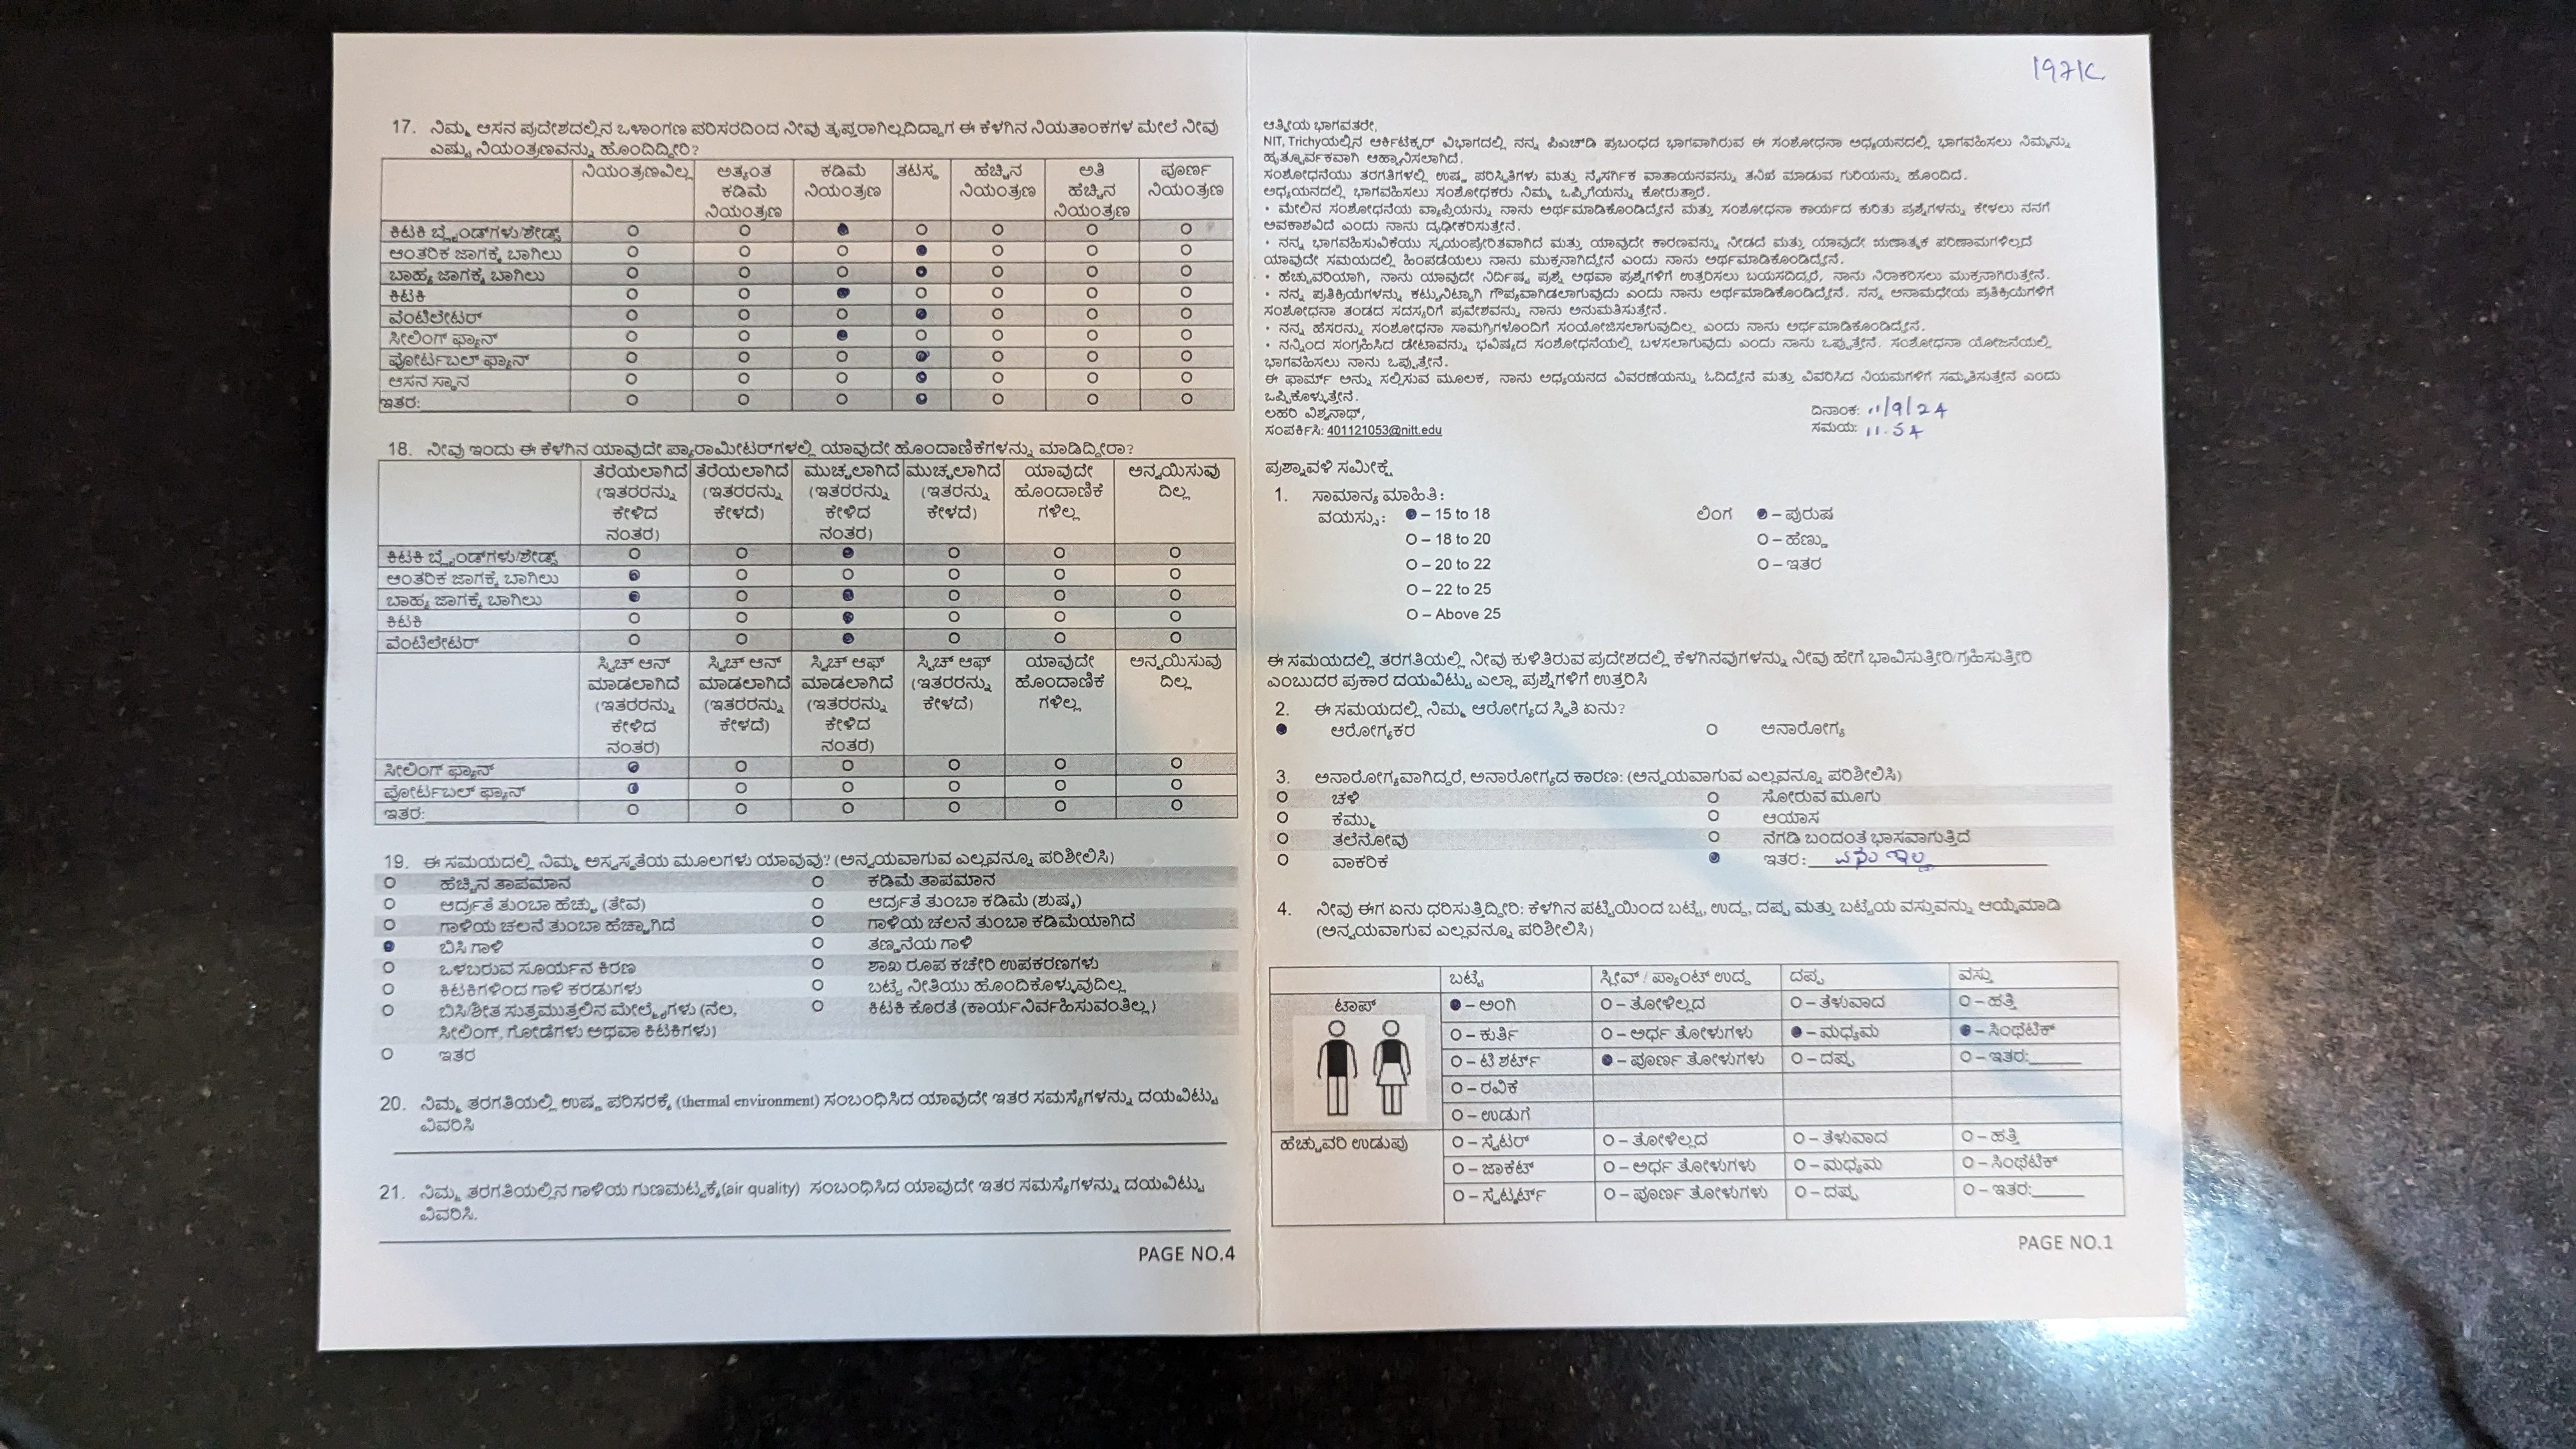 17. ನಿಮ್ಮ ಆಸನ ಪ್ರದೇಶದಲ್ಲಿನ ಒಳಾಂಗಣ ಪರಿಸರದಿಂದ ನೀವು ತೃಪ್ತರಾಗಿಲ್ಲದಿದ್ದಾಗ ಈ ಕೆಳಗಿನ ನಿಯತಾಂಕಗಳ ಮೇಲೆ ನೀವು
ಎಷ್ಟು ನಿಯಂತ್ರಣವನ್ನು ಹೊಂದಿದ್ದೀರಿ?
ನಿಯಂತ್ರಣವಿಲ್ಲ ಅತ್ಯಂತ ಕಡಿಮೆ ನಿಯಂತ್ರಣ ಕಡಿಮೆ ನಿಯಂತ್ರಣ ತಟಸ್ಥ ಹೆಚ್ಚಿನ ನಿಯಂತ್ರಣ ಅತಿ ಹೆಚ್ಚಿನ ನಿಯಂತ್ರಣ ಪೂರ್ಣ ನಿಯಂತ್ರಣ
ಕಿಟಕಿ ಬ್ಲೈಂಡ್‌ಗಳು/ಶೇಡ್ಸ್
ಆಂತರಿಕ ಜಾಗಕ್ಕೆ ಬಾಗಿಲು
ಬಾಹ್ಯ ಜಾಗಕ್ಕೆ ಬಾಗಿಲು
ಕಿಟಕಿ
ವೆಂಟಿಲೇಟರ್
ಸೀಲಿಂಗ್ ಫ್ಯಾನ್
ಪೋರ್ಟಬಲ್ ಫ್ಯಾನ್
ಆಸನ ಸ್ಥಾನ
ಇತರ:
18. ನೀವು ಇಂದು ಈ ಕೆಳಗಿನ ಯಾವುದೇ ಪ್ಯಾರಾಮೀಟರ್‌ಗಳಲ್ಲಿ ಯಾವುದೇ ಹೊಂದಾಣಿಕೆಗಳನ್ನು ಮಾಡಿದ್ದೀರಾ?
ತೆರೆಯಲಾಗಿದೆ (ಇತರರನ್ನು ಕೇಳಿದ ನಂತರ) ತೆರೆಯಲಾಗಿದೆ (ಇತರರನ್ನು ಕೇಳದೆ) ಮುಚ್ಚಲಾಗಿದೆ (ಇತರರನ್ನು ಕೇಳಿದ ನಂತರ) ಮುಚ್ಚಲಾಗಿದೆ (ಇತರರನ್ನು ಕೇಳದೆ) ಯಾವುದೇ ಹೊಂದಾಣಿಕೆ ಗಳಿಲ್ಲ ಅನ್ವಯಿಸುವು ದಿಲ್ಲ
ಕಿಟಕಿ ಬ್ಲೈಂಡ್‌ಗಳು/ಶೇಡ್ಸ್
ಆಂತರಿಕ ಜಾಗಕ್ಕೆ ಬಾಗಿಲು
ಬಾಹ್ಯ ಜಾಗಕ್ಕೆ ಬಾಗಿಲು
ಕಿಟಕಿ
ವೆಂಟಿಲೇಟರ್
ಸ್ವಿಚ್ ಆನ್ ಮಾಡಲಾಗಿದೆ (ಇತರರನ್ನು ಕೇಳಿದ ನಂತರ) ಸ್ವಿಚ್ ಆನ್ ಮಾಡಲಾಗಿದೆ (ಇತರರನ್ನು ಕೇಳದೆ) ಸ್ವಿಚ್ ಆಫ್ ಮಾಡಲಾಗಿದೆ (ಇತರರನ್ನು ಕೇಳಿದ ನಂತರ) ಸ್ವಿಚ್ ಆಫ್ (ಇತರರನ್ನು ಕೇಳದೆ) ಯಾವುದೇ ಹೊಂದಾಣಿಕೆ ಗಳಿಲ್ಲ ಅನ್ವಯಿಸುವು ದಿಲ್ಲ
ಸೀಲಿಂಗ್ ಫ್ಯಾನ್
ಪೋರ್ಟಬಲ್ ಫ್ಯಾನ್
ಇತರ:
19. ಈ ಸಮಯದಲ್ಲಿ ನಿಮ್ಮ ಅಸ್ವಸ್ಥತೆಯ ಮೂಲಗಳು ಯಾವುವು? (ಅನ್ವಯವಾಗುವ ಎಲ್ಲವನ್ನೂ ಪರಿಶೀಲಿಸಿ)
ಹೆಚ್ಚಿನ ತಾಪಮಾನ ಕಡಿಮೆ ತಾಪಮಾನ
ಆರ್ದ್ರತೆ ತುಂಬಾ ಹೆಚ್ಚು (ತೇವ) ಆರ್ದ್ರತೆ ತುಂಬಾ ಕಡಿಮೆ (ಶುಷ್ಕ)
ಗಾಳಿಯ ಚಲನೆ ತುಂಬಾ ಹೆಚ್ಚಾಗಿದೆ ಗಾಳಿಯ ಚಲನೆ ತುಂಬಾ ಕಡಿಮೆಯಾಗಿದೆ
ಬಿಸಿ ಗಾಳಿ ತಣ್ಣನೆಯ ಗಾಳಿ
ಒಳಬರುವ ಸೂರ್ಯನ ಕಿರಣ ಶಾಖ ರೂಪ ಕಚೇರಿ ಉಪಕರಣಗಳು
ಕಿಟಕಿಗಳಿಂದ ಗಾಳಿ ಕರಡುಗಳು ಬಟ್ಟೆ ನೀತಿಯು ಹೊಂದಿಕೊಳ್ಳುವುದಿಲ್ಲ
ಬಿಸಿ/ಶೀತ ಸುತ್ತಮುತ್ತಲಿನ ಮೇಲ್ಮೈಗಳು (ನೆಲ, ಕಿಟಕಿ ಕೊರತೆ (ಕಾರ್ಯನಿರ್ವಹಿಸುವಂತಿಲ್ಲ)
ಸೀಲಿಂಗ್, ಗೋಡೆಗಳು ಅಥವಾ ಕಿಟಕಿಗಳು)
ಇತರ
20. ನಿಮ್ಮ ತರಗತಿಯಲ್ಲಿ ಉಷ್ಣ ಪರಿಸರಕ್ಕೆ (thermal environment) ಸಂಬಂಧಿಸಿದ ಯಾವುದೇ ಇತರ ಸಮಸ್ಯೆಗಳನ್ನು ದಯವಿಟ್ಟು
ವಿವರಿಸಿ
21. ನಿಮ್ಮ ತರಗತಿಯಲ್ಲಿನ ಗಾಳಿಯ ಗುಣಮಟ್ಟಕ್ಕೆ(air quality) ಸಂಬಂಧಿಸಿದ ಯಾವುದೇ ಇತರ ಸಮಸ್ಯೆಗಳನ್ನು ದಯವಿಟ್ಟು
ವಿವರಿಸಿ.
PAGE NO.4
197K
ಆತ್ಮೀಯ ಭಾಗವತರೇ,
NIT, Trichyಯಲ್ಲಿನ ಆರ್ಕಿಟೆಕ್ಚರ್ ವಿಭಾಗದಲ್ಲಿ ನನ್ನ ಪಿಎಚ್‌ಡಿ ಪ್ರಬಂಧದ ಭಾಗವಾಗಿರುವ ಈ ಸಂಶೋಧನಾ ಅಧ್ಯಯನದಲ್ಲಿ ಭಾಗವಹಿಸಲು ನಿಮ್ಮನ್ನು
ಹೃತ್ಪೂರ್ವಕವಾಗಿ ಆಹ್ವಾನಿಸಲಾಗಿದೆ.
ಸಂಶೋಧನೆಯು ತರಗತಿಗಳಲ್ಲಿ ಉಷ್ಣ ಪರಿಸ್ಥಿತಿಗಳು ಮತ್ತು ನೈಸರ್ಗಿಕ ವಾತಾಯನವನ್ನು ತನಿಖೆ ಮಾಡುವ ಗುರಿಯನ್ನು ಹೊಂದಿದೆ.
ಅಧ್ಯಯನದಲ್ಲಿ ಭಾಗವಹಿಸಲು ಸಂಶೋಧಕರು ನಿಮ್ಮ ಒಪ್ಪಿಗೆಯನ್ನು ಕೋರುತ್ತಾರೆ.
• ಮೇಲಿನ ಸಂಶೋಧನೆಯ ವ್ಯಾಪ್ತಿಯನ್ನು ನಾನು ಅರ್ಥಮಾಡಿಕೊಂಡಿದ್ದೇನೆ ಮತ್ತು ಸಂಶೋಧನಾ ಕಾರ್ಯದ ಕುರಿತು ಪ್ರಶ್ನೆಗಳನ್ನು ಕೇಳಲು ನನಗೆ
ಅವಕಾಶವಿದೆ ಎಂದು ನಾನು ದೃಢೀಕರಿಸುತ್ತೇನೆ.
• ನನ್ನ ಭಾಗವಹಿಸುವಿಕೆಯು ಸ್ವಯಂಪ್ರೇರಿತವಾಗಿದೆ ಮತ್ತು ಯಾವುದೇ ಕಾರಣವನ್ನು ನೀಡದೆ ಮತ್ತು ಯಾವುದೇ ಋಣಾತ್ಮಕ ಪರಿಣಾಮಗಳಿಲ್ಲದೆ
ಯಾವುದೇ ಸಮಯದಲ್ಲಿ ಹಿಂಪಡೆಯಲು ನಾನು ಮುಕ್ತನಾಗಿದ್ದೇನೆ ಎಂದು ನಾನು ಅರ್ಥಮಾಡಿಕೊಂಡಿದ್ದೇನೆ.
• ಹೆಚ್ಚುವರಿಯಾಗಿ, ನಾನು ಯಾವುದೇ ನಿರ್ದಿಷ್ಟ ಪ್ರಶ್ನೆ ಅಥವಾ ಪ್ರಶ್ನೆಗಳಿಗೆ ಉತ್ತರಿಸಲು ಬಯಸದಿದ್ದರೆ, ನಾನು ನಿರಾಕರಿಸಲು ಮುಕ್ತನಾಗಿರುತ್ತೇನೆ.
• ನನ್ನ ಪ್ರತಿಕ್ರಿಯೆಗಳನ್ನು ಕಟ್ಟುನಿಟ್ಟಾಗಿ ಗೌಪ್ಯವಾಗಿಡಲಾಗುವುದು ಎಂದು ನಾನು ಅರ್ಥಮಾಡಿಕೊಂಡಿದ್ದೇನೆ. ನನ್ನ ಅನಾಮಧೇಯ ಪ್ರತಿಕ್ರಿಯೆಗಳಿಗೆ
ಸಂಶೋಧನಾ ತಂಡದ ಸದಸ್ಯರಿಗೆ ಪ್ರವೇಶವನ್ನು ನಾನು ಅನುಮತಿಸುತ್ತೇನೆ.
• ನನ್ನ ಹೆಸರನ್ನು ಸಂಶೋಧನಾ ಸಾಮಗ್ರಿಗಳೊಂದಿಗೆ ಸಂಯೋಜಿಸಲಾಗುವುದಿಲ್ಲ ಎಂದು ನಾನು ಅರ್ಥಮಾಡಿಕೊಂಡಿದ್ದೇನೆ.
• ನನ್ನಿಂದ ಸಂಗ್ರಹಿಸಿದ ಡೇಟಾವನ್ನು ಭವಿಷ್ಯದ ಸಂಶೋಧನೆಯಲ್ಲಿ ಬಳಸಲಾಗುವುದು ಎಂದು ನಾನು ಒಪ್ಪುತ್ತೇನೆ. ಸಂಶೋಧನಾ ಯೋಜನೆಯಲ್ಲಿ
ಭಾಗವಹಿಸಲು ನಾನು ಒಪ್ಪುತ್ತೇನೆ.
ಈ ಫಾರ್ಮ್ ಅನ್ನು ಸಲ್ಲಿಸುವ ಮೂಲಕ, ನಾನು ಅಧ್ಯಯನದ ವಿವರಣೆಯನ್ನು ಓದಿದ್ದೇನೆ ಮತ್ತು ವಿವರಿಸಿದ ನಿಯಮಗಳಿಗೆ ಸಮ್ಮತಿಸುತ್ತೇನೆ ಎಂದು
ಒಪ್ಪಿಕೊಳ್ಳುತ್ತೇನೆ.
ಲಹರಿ ವಿಶ್ವನಾಥ್, ದಿನಾಂಕ: 11/9/24
ಸಂಪರ್ಕಿಸಿ: 401121053@nitt.edu ಸಮಯ: 11.54
ಪ್ರಶ್ನಾವಳಿ ಸಮೀಕ್ಷೆ
1. ಸಾಮಾನ್ಯ ಮಾಹಿತಿ:
ವಯಸ್ಸು: – 15 to 18 ಲಿಂಗ – ಪುರುಷ
– 18 to 20 – ಹೆಣ್ಣು
– 20 to 22 – ಇತರ
– 22 to 25
– Above 25
ಈ ಸಮಯದಲ್ಲಿ ತರಗತಿಯಲ್ಲಿ ನೀವು ಕುಳಿತಿರುವ ಪ್ರದೇಶದಲ್ಲಿ ಕೆಳಗಿನವುಗಳನ್ನು ನೀವು ಹೇಗೆ ಭಾವಿಸುತ್ತೀರಿ/ಗ್ರಹಿಸುತ್ತೀರಿ
ಎಂಬುದರ ಪ್ರಕಾರ ದಯವಿಟ್ಟು ಎಲ್ಲಾ ಪ್ರಶ್ನೆಗಳಿಗೆ ಉತ್ತರಿಸಿ
2. ಈ ಸಮಯದಲ್ಲಿ ನಿಮ್ಮ ಆರೋಗ್ಯದ ಸ್ಥಿತಿ ಏನು?
ಆರೋಗ್ಯಕರ ಅನಾರೋಗ್ಯ
3. ಅನಾರೋಗ್ಯವಾಗಿದ್ದರೆ, ಅನಾರೋಗ್ಯದ ಕಾರಣ: (ಅನ್ವಯವಾಗುವ ಎಲ್ಲವನ್ನೂ ಪರಿಶೀಲಿಸಿ)
ಚಳಿ ಸೋರುವ ಮೂಗು
ಕೆಮ್ಮು ಆಯಾಸ
ತಲೆನೋವು ನೆಗಡಿ ಬಂದಂತೆ ಭಾಸವಾಗುತ್ತಿದೆ
ವಾಕರಿಕೆ ಇತರ: ಏನು ಇಲ್ಲ
4. ನೀವು ಈಗ ಏನು ಧರಿಸುತ್ತಿದ್ದೀರಿ: ಕೆಳಗಿನ ಪಟ್ಟಿಯಿಂದ ಬಟ್ಟೆ, ಉದ್ದ, ದಪ್ಪ ಮತ್ತು ಬಟ್ಟೆಯ ವಸ್ತುವನ್ನು ಆಯ್ಕೆಮಾಡಿ
(ಅನ್ವಯವಾಗುವ ಎಲ್ಲವನ್ನೂ ಪರಿಶೀಲಿಸಿ)
ಬಟ್ಟೆ ಸ್ಲೀವ್ / ಪ್ಯಾಂಟ್ ಉದ್ದ ದಪ್ಪ ವಸ್ತು
ಟಾಪ್ – ಅಂಗಿ – ತೋಳಿಲ್ಲದ – ತೆಳುವಾದ – ಹತ್ತಿ
– ಕುರ್ತಿ – ಅರ್ಧ ತೋಳುಗಳು – ಮಧ್ಯಮ – ಸಿಂಥೆಟಿಕ್
– ಟಿ ಶರ್ಟ್ – ಪೂರ್ಣ ತೋಳುಗಳು – ದಪ್ಪ – ಇತರ:
– ರವಿಕೆ
– ಉಡುಗೆ
ಹೆಚ್ಚುವರಿ ಉಡುಪು – ಸ್ವೆಟರ್ – ತೋಳಿಲ್ಲದ – ತೆಳುವಾದ – ಹತ್ತಿ
– ಜಾಕೆಟ್ – ಅರ್ಧ ತೋಳುಗಳು – ಮಧ್ಯಮ – ಸಿಂಥೆಟಿಕ್
– ಸ್ವೆಟ್ಶರ್ಟ್ – ಪೂರ್ಣ ತೋಳುಗಳು – ದಪ್ಪ – ಇತರ:
PAGE NO.1